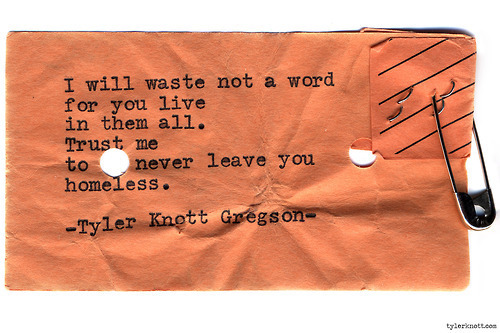 I will waste not a word
for you live
in them all.
Trust me
to never leave you
homeless.
-Tyler Knott Gregson-
tylerknott.com